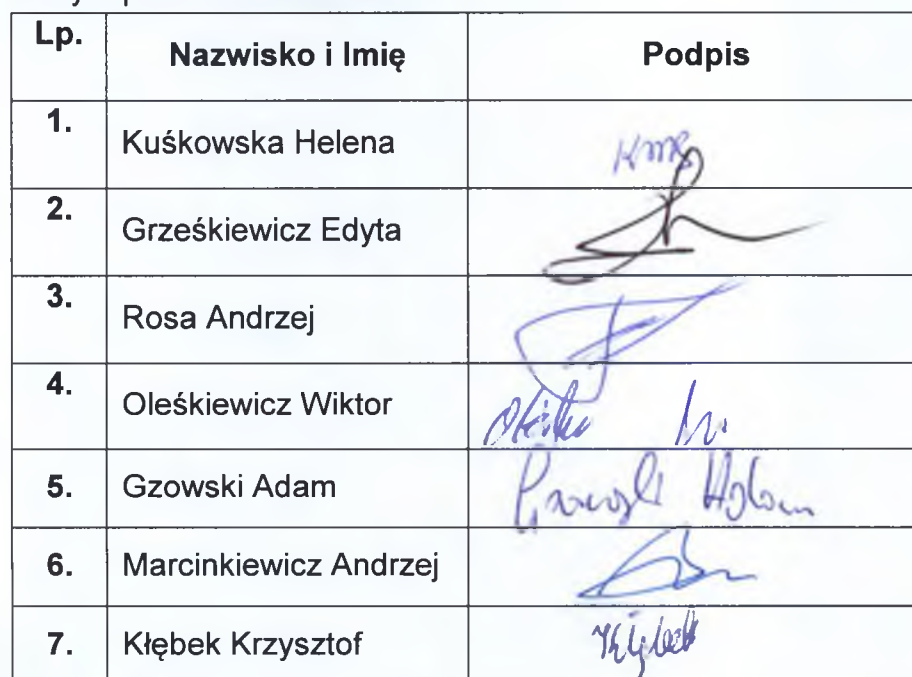 Lp. Nazwisko i Imię Podpis
1. Kuśkowska Helena
2. Grześkiewicz Edyta
3. Rosa Andrzej
4. Oleśkiewicz Wiktor
5. Gzowski Adam Gzowski Adam
6. Marcinkiewicz Andrzej
7. Kłębek Krzysztof Kłębek